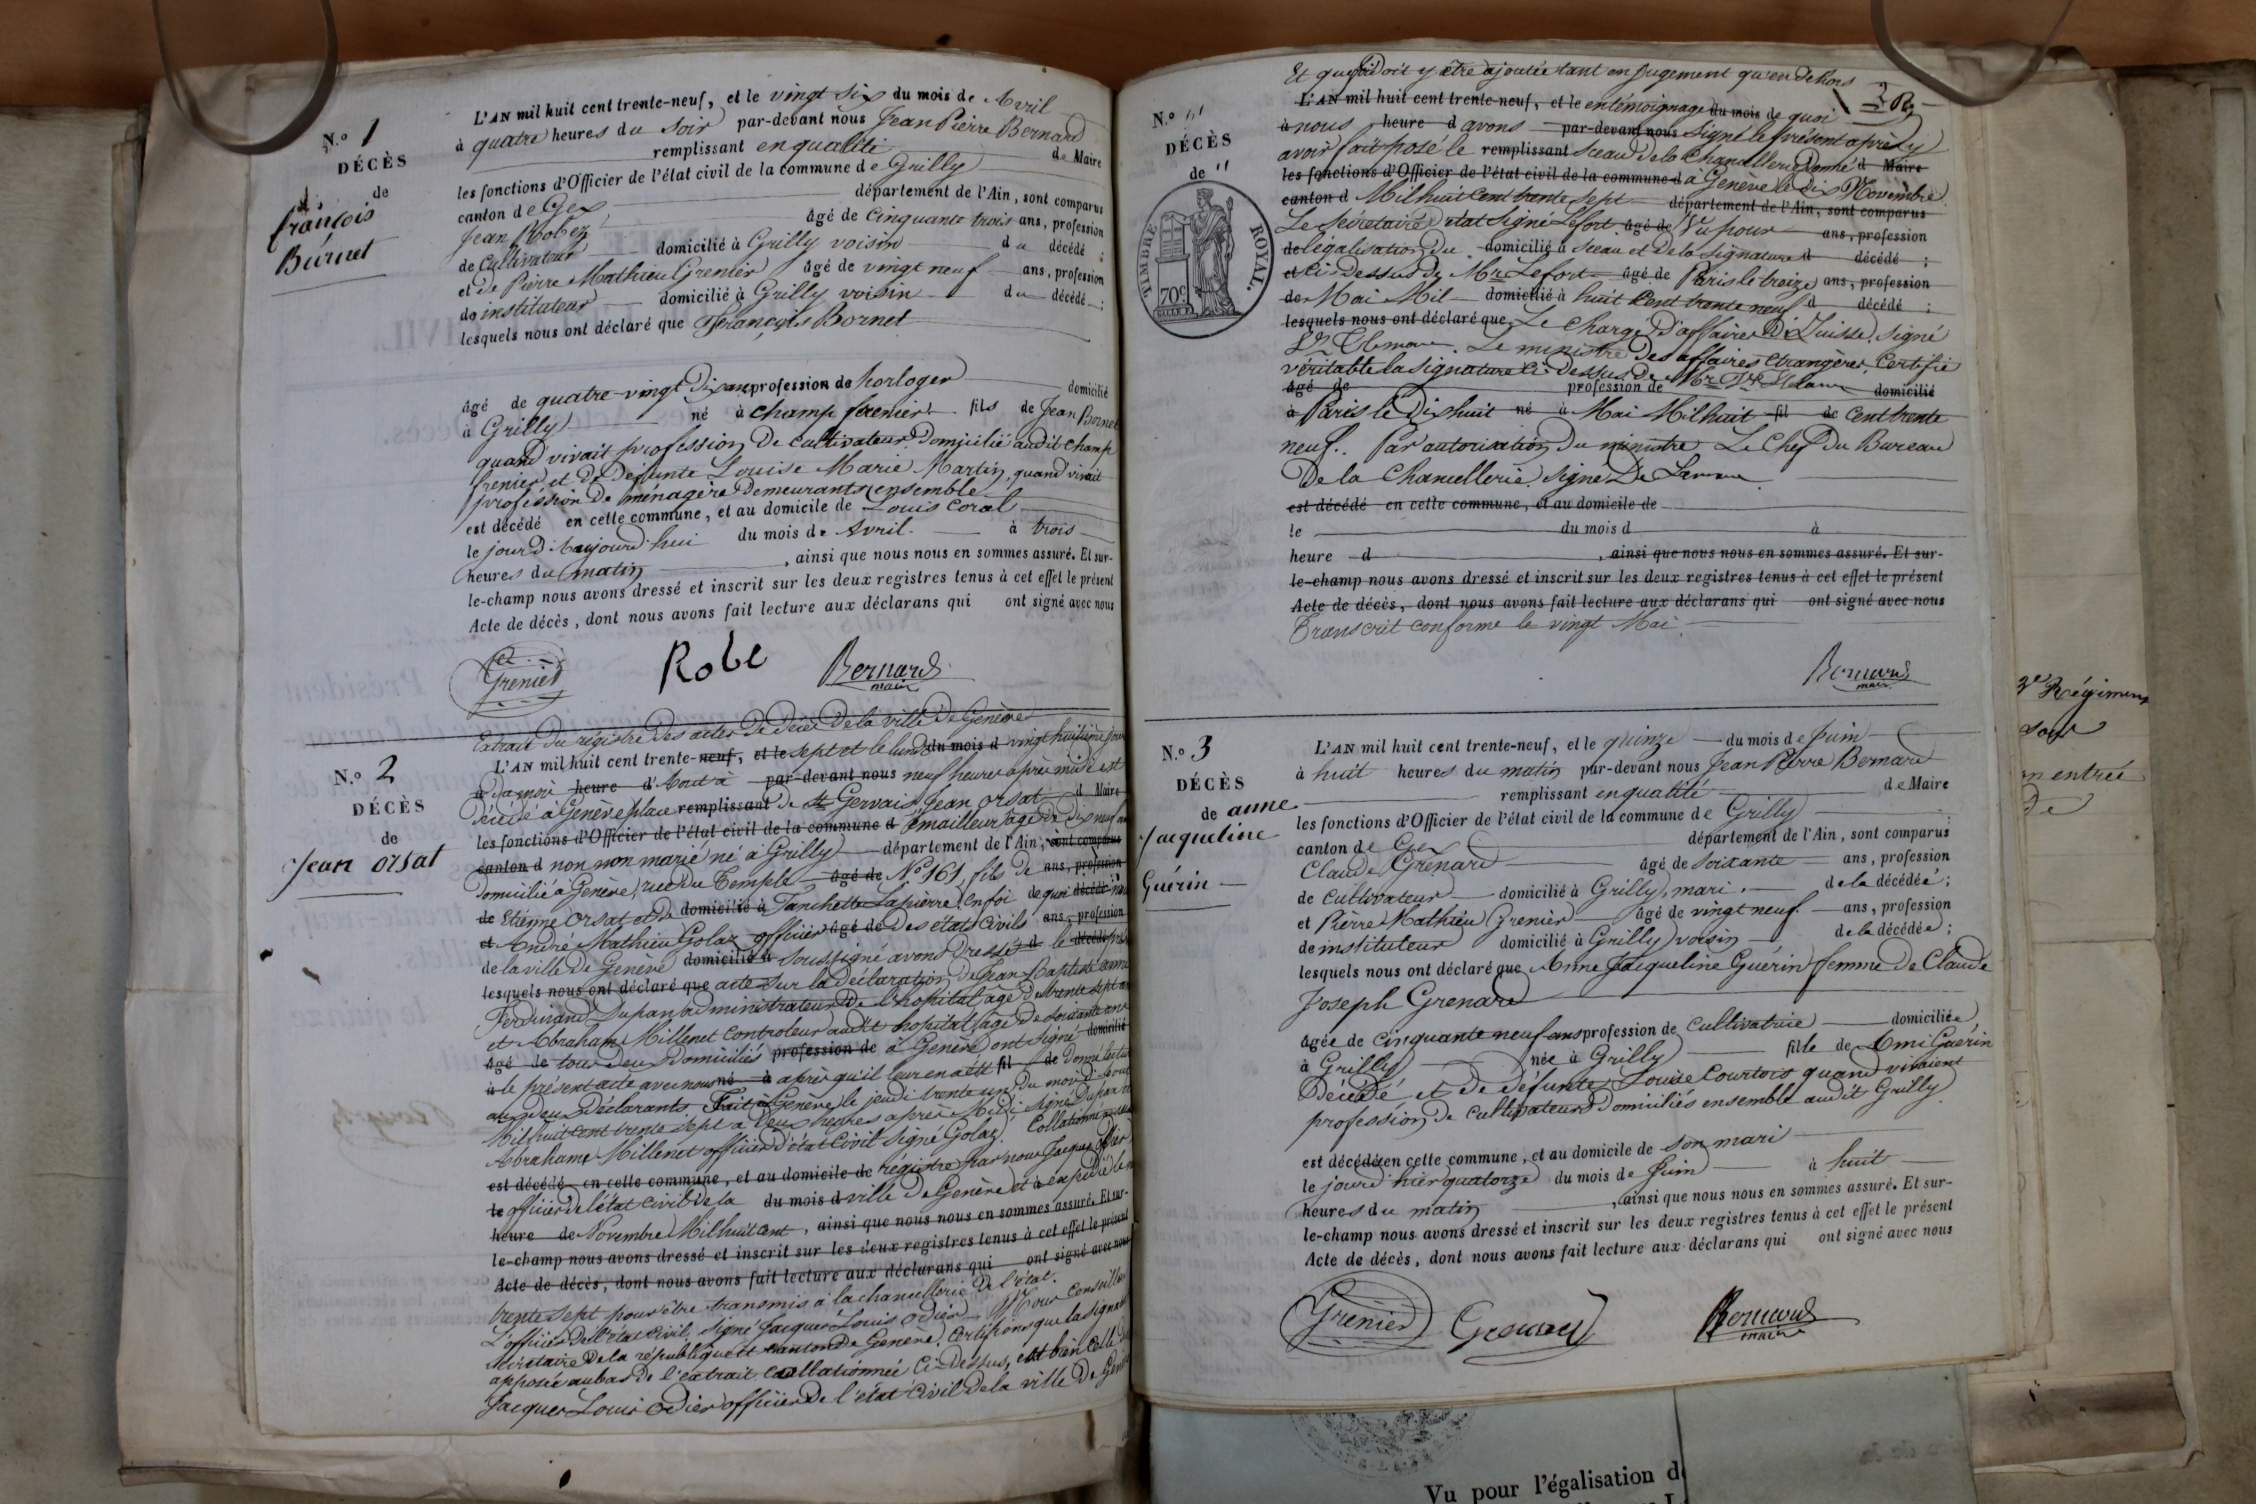 N.o 1
DÉCÈS
de
françois
Burnet
L'AN mil huit cent trente-neuf, et le vingt six du mois de Avril
à quatre heures du soir par-devant nous Jean Pierre Bernard
remplissant en qualité de Maire
les fonctions d'Officier de l'état civil de la commune de Grilly
canton de Gex département de l'Ain, sont comparus
Jean Robez âgé de Cinquante trois ans, profession
de Cultivateur domicilié à Grilly voisin du décédé ;
et de Pierre Mathieu Grenier âgé de vingt neuf ans, profession
de instituteur domicilié à Grilly voisin du décédé ;
lesquels nous ont déclaré que François Bornet
âgé de quatre-vingt dix ans profession de horloger domicilié
à Grilly né à champ fremier fils de Jean Bornet
quand vivait profession de cultivateur domicilié audit champ
fremier et de défunte Louise Marie Martin, quand vivait
profession de ménagère demeurants ensemble
est décédé en cette commune, et au domicile de Louis Coral
le jour d'aujourd'hui du mois de Avril. à trois
heures du matin , ainsi que nous nous en sommes assuré. Et sur-
le-champ nous avons dressé et inscrit sur les deux registres tenus à cet effet le présent
Acte de décès, dont nous avons fait lecture aux déclarans qui ont signé avec nous
Grenier Robe Bernard
maire
N.o 2
DÉCÈS
de
Jean Orsat
Extrait du régistre des actes de Décès de la ville de Genève
L'AN mil huit cent trente-neuf, et le sept et le lundi du mois d vingt huitième jour
à du mois heure d'Aout à par-devant nous neuf heures après midi est
décédé à Genève place remplissant de St Gervais Jean Orsat d Maire
les fonctions d'Officier de l'état civil de la commune d Emailleur âgé de dix neuf
canton d non marié né à Grilly département de l'Ain, sont comparus
domicilié à Genève, rue du Temple âgé de No 161, fils de ans, profession
de Etienne Orsat et de domicilié à Lapierre, en foi de quoi décédé
et André Mathieu Golaz officier âgé de des états Civils ans, profession
de la ville de Genève domicilié à soussigné avons dressé d le décédé
lesquels nous ont déclaré que acte sur la déclaration de Jean Baptiste
Ferdinand Dupan administrateur de l'hopital âgé de trente sept
et Abraham Millenet Controleur audit hopital âgé de soixante ans
âgé de tous deux domiciliés profession de à Genève ont signé domicilié
à le présent acte avec nous né à après qu'il leur en a été fil de donné lecture
aux deux déclarants. Fait à Genève le jeudi trente un du mois d'Aout
Mil huit cent trente sept à deux heures après Midi signé Dupan
Abraham Millenet officier d'état Civil signé Golaz. Collationné
est décédé en cette commune, et au domicile de régistre par nous Jacques
le officier de l'état civil de la du mois d ville de Genève et expédié le
heure de Novembre Mil huit cent , ainsi que nous nous en sommes assuré. Et sur-
le-champ nous avons dressé et inscrit sur les deux registres tenus à cet effet le présent
Acte de décès, dont nous avons fait lecture aux déclarans qui ont signé avec nous
trente sept pour être transmis à la chancellerie de l'état.
L'officier de l'état Civil, signé Jacques Louis Odier Nous Conseiller
Secrétaire de la république et canton de Genève, Certifions que la signature
apposée au bas de l'extrait collationnée ci-dessus, est bien celle
Jacques Louis Odier officier de l'état civil de la ville de Genève
N.o 11
DÉCÈS
de 11
TIMBRE ROYAL.
70c
Et que foi doit y être ajoutée tant en jugement qu'en dehors
L'AN mil huit cent trente-neuf, et le en témoignage du mois de quoi
à nous heure d avons par-devant nous signé le présent après y
avoir fait posé le remplissant sceau de la Chancellerie. Donné d Maire
les fonctions d'Officier de l'état civil de la commune d à Genève le dix Novembre
canton d Mil huit cent trente sept département de l'Ain, sont comparus
Le Secrétaire d'état signé Lefort. âgé de Vu pour ans, profession
de légalisation du domicilié à sceau et de la signature d décédé ;
et ci-dessus de Mr Lefort âgé de Paris le treize ans, profession
de Mai Mil domicilié à huit cent trente neuf d décédé ;
lesquels nous ont déclaré que Le Chargé d'affaires de Suisse. signé
Le ministre des affaires étrangères certifie
véritable la signature ci-dessus de Mr
âgé de profession de domicilié
à Paris le dix huit né à Mai Mil huit fil de cent trente
neuf. Par autorisation du ministre Le Chef du Bureau
De la Chancellerie signé De
est décédé en cette commune, et au domicile de
le du mois d à
heure d , ainsi que nous nous en sommes assuré. Et sur-
le-champ nous avons dressé et inscrit sur les deux registres tenus à cet effet le présent
Acte de décès, dont nous avons fait lecture aux déclarans qui ont signé avec nous
Transcrit conforme le vingt Mai.
Bernard
maire
N.o 3
DÉCÈS
de anne
Jacqueline
Guérin
L'AN mil huit cent trente-neuf, et le quinze du mois de Juin
à huit heures du matin par-devant nous Jean Pierre Bernard
remplissant en qualité de Maire
les fonctions d'Officier de l'état civil de la commune de Grilly
canton de Gex département de l'Ain, sont comparus
Claude Grenard âgé de soixante ans, profession
de cultivateur domicilié à Grilly, mari. de la décédée ;
et Pierre Mathieu Grenier âgé de vingt neuf. ans, profession
de instituteur domicilié à Grilly voisin de la décédée ;
lesquels nous ont déclaré que Anne Jacqueline Guérin femme de Claude
Joseph Grenard
âgée de cinquante neuf ans profession de cultivatrice domiciliée
à Grilly née à Grilly fille de Ami Guérin
Décédé et de défunte Louise Courtois quand vivaient
profession de cultivateurs domiciliés ensemble audit Grilly
est décédée en cette commune, et au domicile de son mari
le jour d'hier quatorze du mois de Juin à huit
heures du matin , ainsi que nous nous en sommes assuré. Et sur-
le-champ nous avons dressé et inscrit sur les deux registres tenus à cet effet le présent
Acte de décès, dont nous avons fait lecture aux déclarans qui ont signé avec nous
Grenier Grenard Bernard
maire
2e Régiment
en entrée
de
Vu pour l'égalisation d